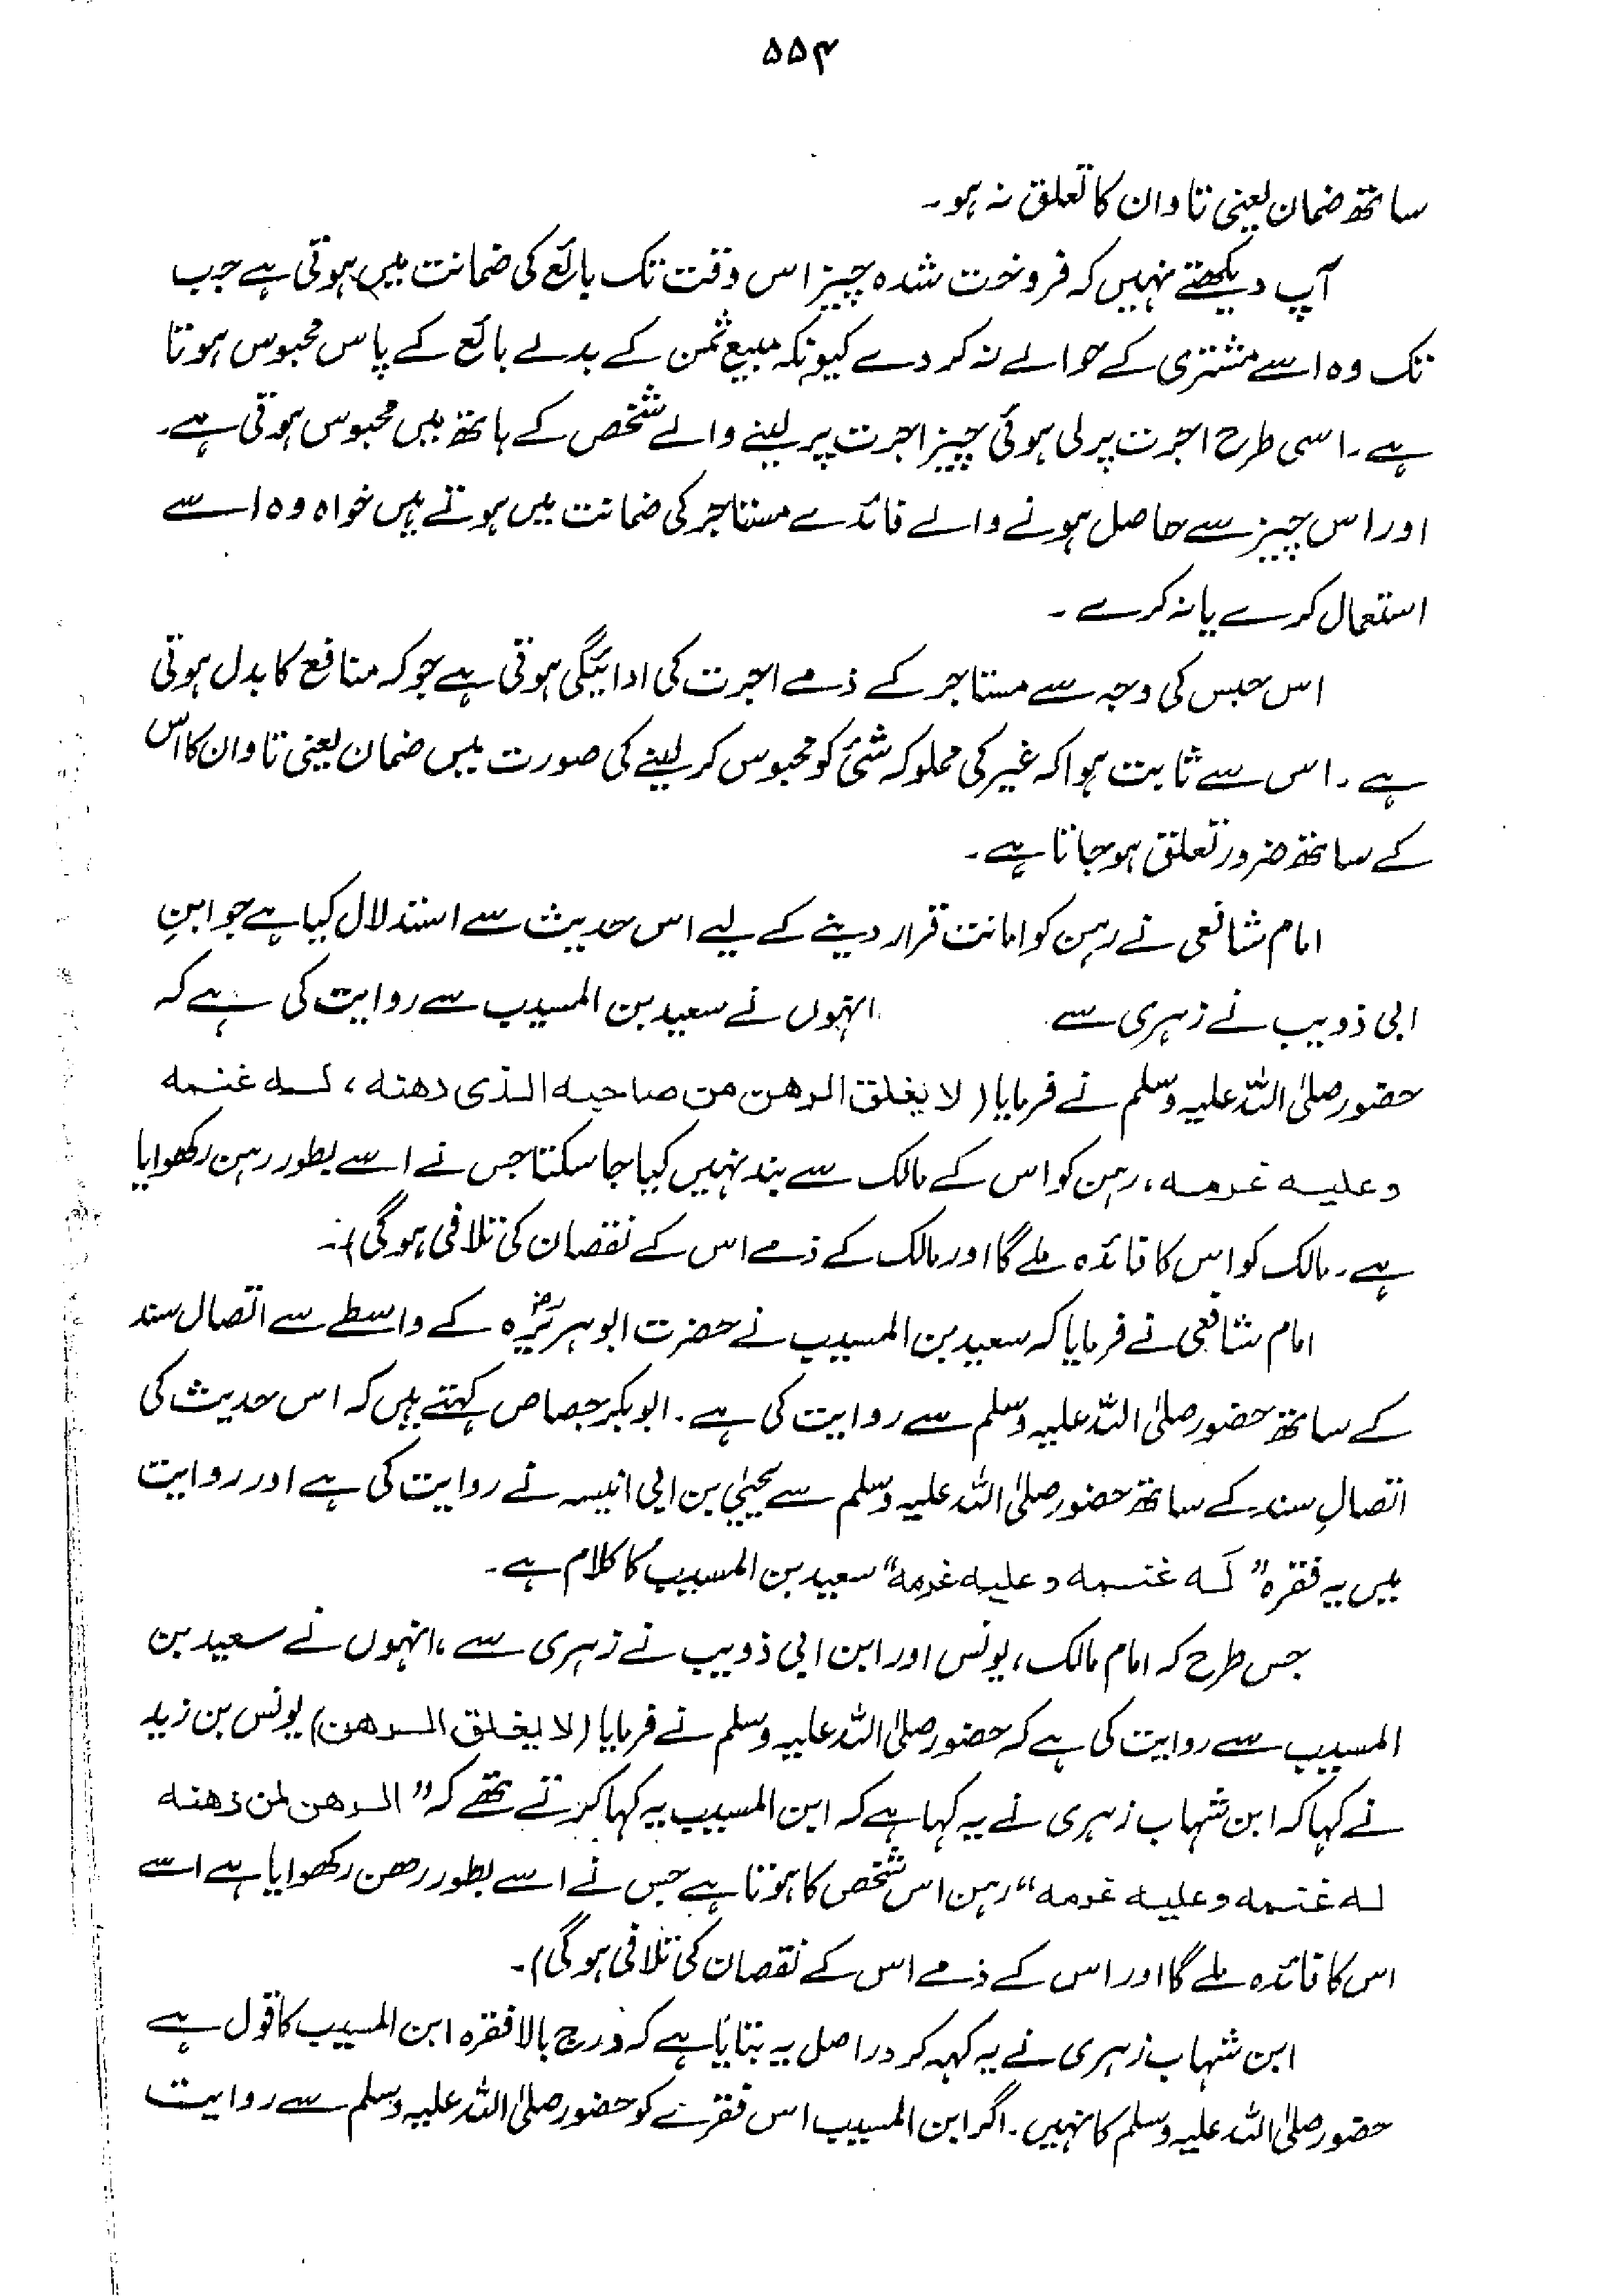 ۵۵۴
ساتھ ضمان یعنی تاوان کا تعلق نہ ہو۔
آپ دیکھتے نہیں کہ فروخت شدہ چیز اس وقت تک بائع کی ضمانت میں ہوتی ہے جب
تک وہ اسے مشتری کے حوالے نہ کر دے کیونکہ مبیع ثمن کے بدلے بائع کے پاس محبوس ہوتا
ہے۔ اسی طرح اجرت پر لی ہوئی چیز اجرت پر لینے والے شخص کے ہاتھ میں محبوس ہوتی ہے۔
اور اس چیز سے حاصل ہونے والے فائدے مستاجر کی ضمانت میں ہوتے ہیں خواہ وہ اسے
استعمال کرے یا نہ کرے۔
اس حبس کی وجہ سے مستاجر کے ذمے اجرت کی ادائیگی ہوتی ہے جو کہ منافع کا بدل ہوتی
ہے۔ اس سے ثابت ہوا کہ غیر کی مملوکہ شئ کو محبوس کر لینے کی صورت میں ضمان یعنی تاوان کا اس
کے ساتھ ضرور تعلق ہو جاتا ہے۔
امام شافعی نے رہن کو امانت قرار دینے کے لیے اس حدیث سے استدلال کیا ہے جو ابنِ
ابی ذویب نے زہری سے انہوں نے سعید بن المسیب سے روایت کی ہے کہ
حضور صلی اللہ علیہ وسلم نے فرمایا (لا یغلق الرهن من صاحبه الذی رهنه، له غنمه
وعلیه غرمه، رہن کو اس کے مالک سے بند نہیں کیا جا سکتا جس نے اسے بطور رہن رکھوایا
ہے۔ مالک کو اس کا فائدہ ملے گا اور مالک کے ذمے اس کے نقصان کی تلافی ہوگی)۔
امام شافعی نے فرمایا کہ سعید بن المسیب نے حضرت ابوہریرہؓ کے واسطے سے اتصال سند
کے ساتھ حضور صلی اللہ علیہ وسلم سے روایت کی ہے۔ ابوبکر جصاص کہتے ہیں کہ اس حدیث کی
اتصالِ سند کے ساتھ حضور صلی اللہ علیہ وسلم سے یحییٰ بن ابی انیسہ نے روایت کی ہے اور روایت
میں یہ فقرہ "له غنمه وعلیه غرمه" سعید بن المسیب کا کلام ہے۔
جس طرح کہ امام مالک، یونس اور ابن ابی ذویب نے زہری سے، انہوں نے سعید بن
المسیب سے روایت کی ہے کہ حضور صلی اللہ علیہ وسلم نے فرمایا (لا یغلق الرهن) یونس بن زید
نے کہا کہ ابن شہاب زہری نے یہ کہا ہے کہ ابن المسیب یہ کہا کرتے تھے کہ "الرهن لمن رهنه
له غنمه وعلیه غرمه" رہن اس شخص کا ہوتا ہے جس نے اسے بطور رھن رکھوایا ہے اسے
اس کا فائدہ ملے گا اور اس کے ذمے اس کے نقصان کی تلافی ہوگی)۔
ابن شہاب زہری نے یہ کہہ کر دراصل یہ بتایا ہے کہ درج بالا فقرہ ابن المسیب کا قول ہے
حضور صلی اللہ علیہ وسلم کا نہیں۔ اگر ابن المسیب اس فقرے کو حضور صلی اللہ علیہ وسلم سے روایت